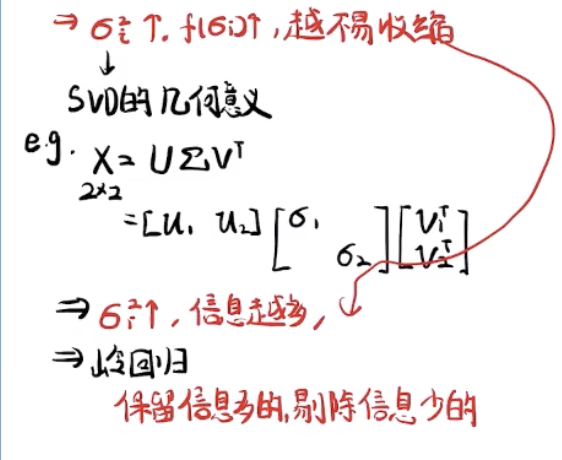 ⇒ σᵢ² ↑, f(σᵢ)↑, 越不易收缩
↓
SVD的几何意义
e.g. X = UΣVᵀ
2×2
= [u₁ u₂] [σ₁ σ₂] [V₁ᵀ V₂ᵀ]
⇒ σᵢ²↑, 信息越多,
⇒ 岭回归
保留信息多的,剔除信息少的